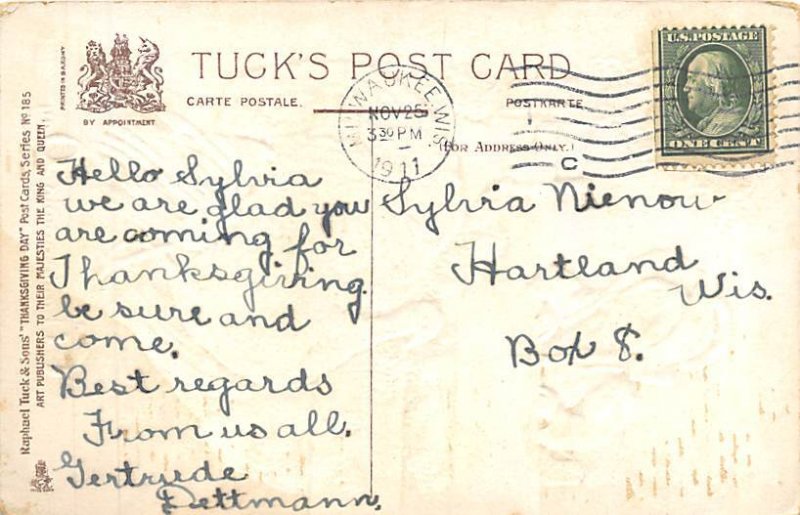 TUCK'S POST CARD
CARTE POSTALE.
POSTKARTE
(FOR ADDRESS ONLY.)
BY APPOINTMENT
PRINTED IN SAXONY
Raphael Tuck & Sons' "THANKSGIVING DAY" Post Cards, Series No 185
ART PUBLISHERS TO THEIR MAJESTIES THE KING AND QUEEN.
MILWAUKEE, WIS.
NOV 25
3 30 PM
1911
C
U.S. POSTAGE
ONE CENT
Hello Sylvia
we are glad you
are coming for
Thanksgiving.
be sure and
come.
Best regards
From us all.
Gertrude
Dettmann.
Sylvia Nienow
Hartland
Wis.
Box 8.